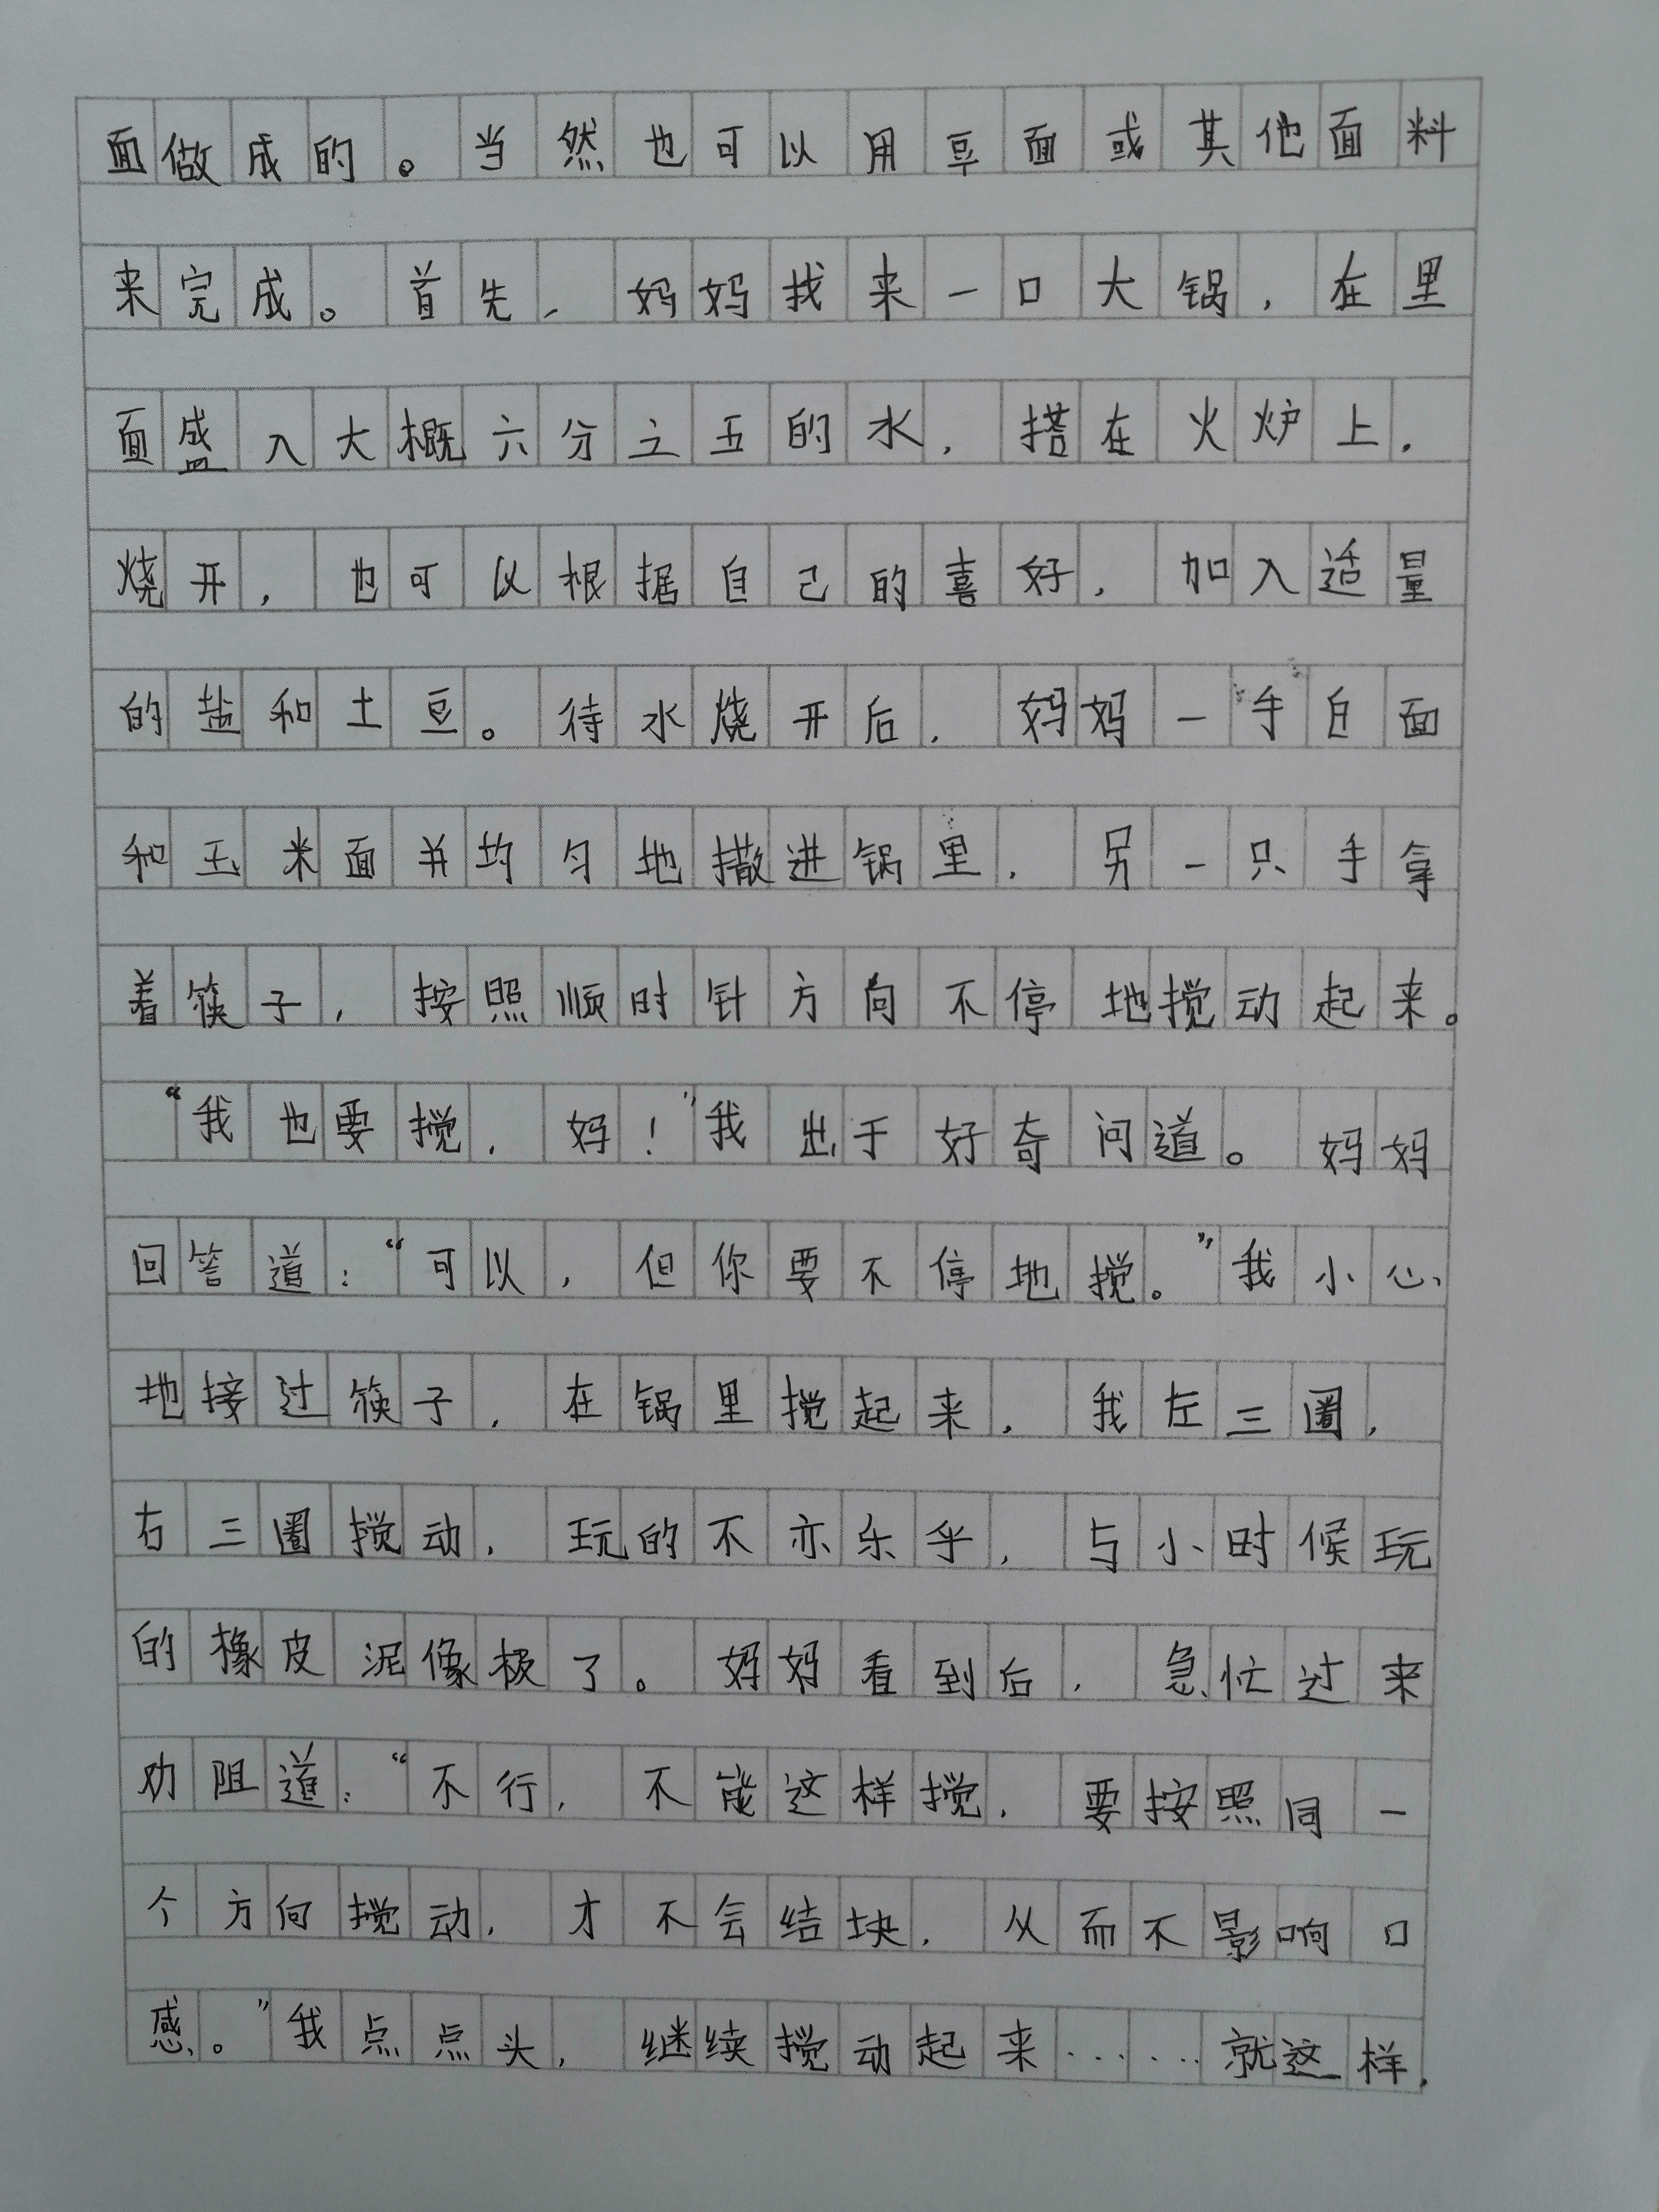 面做成的。当然也可以用豆面或其他面料
来完成。首先，妈妈找来一口大锅，在里
面盛入大概六分之五的水，搭在火炉上，
烧开，也可以根据自己的喜好，加入适量
的盐和土豆。待水烧开后，妈妈一手白面
和玉米面并均匀地撒进锅里，另一只手拿
着筷子，按照顺时针方向不停地搅动起来。
“我也要搅，妈！”我出于好奇问道。妈妈
回答道：“可以，但你要不停地搅。”我小心
地接过筷子，在锅里搅起来，我左三圈，
右三圈搅动，玩的不亦乐乎，与小时候玩
的橡皮泥像极了。妈妈看到后，急忙过来
劝阻道：“不行，不能这样搅，要按照同一
个方向搅动，才不会结块，从而不影响口
感。”我点点头，继续搅动起来……就这样，